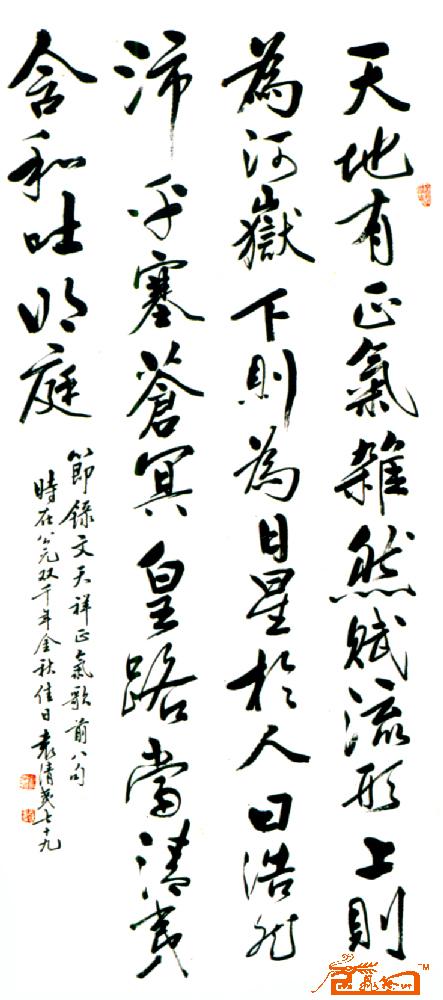 天地有正氣雜然賦流形上則
為河嶽下則為日星於人曰浩然
沛乎塞蒼冥皇路當清夷
含和吐明庭
節錄文天祥正氣歌前八句
時在公元双千年金秋佳日袁清七十九